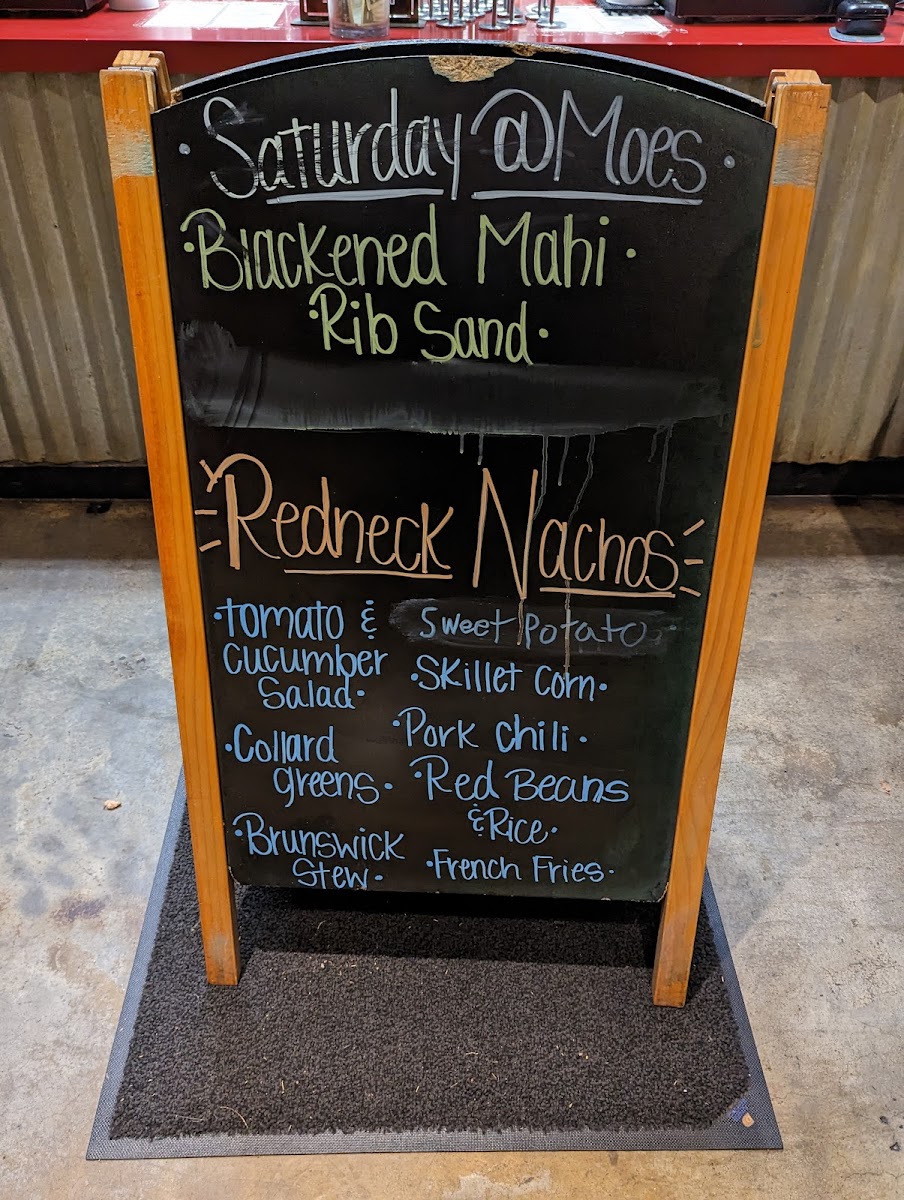 ·Saturday @Moes·
·Blackened Mahi·
·Rib Sand·
Redneck Nachos
·Tomato &
Cucumber
Salad·
·Collard
greens·
·Brunswick
Stew·
Sweet Potato
·Skillet Corn·
·Pork Chili·
·Red Beans
& Rice·
·French Fries·